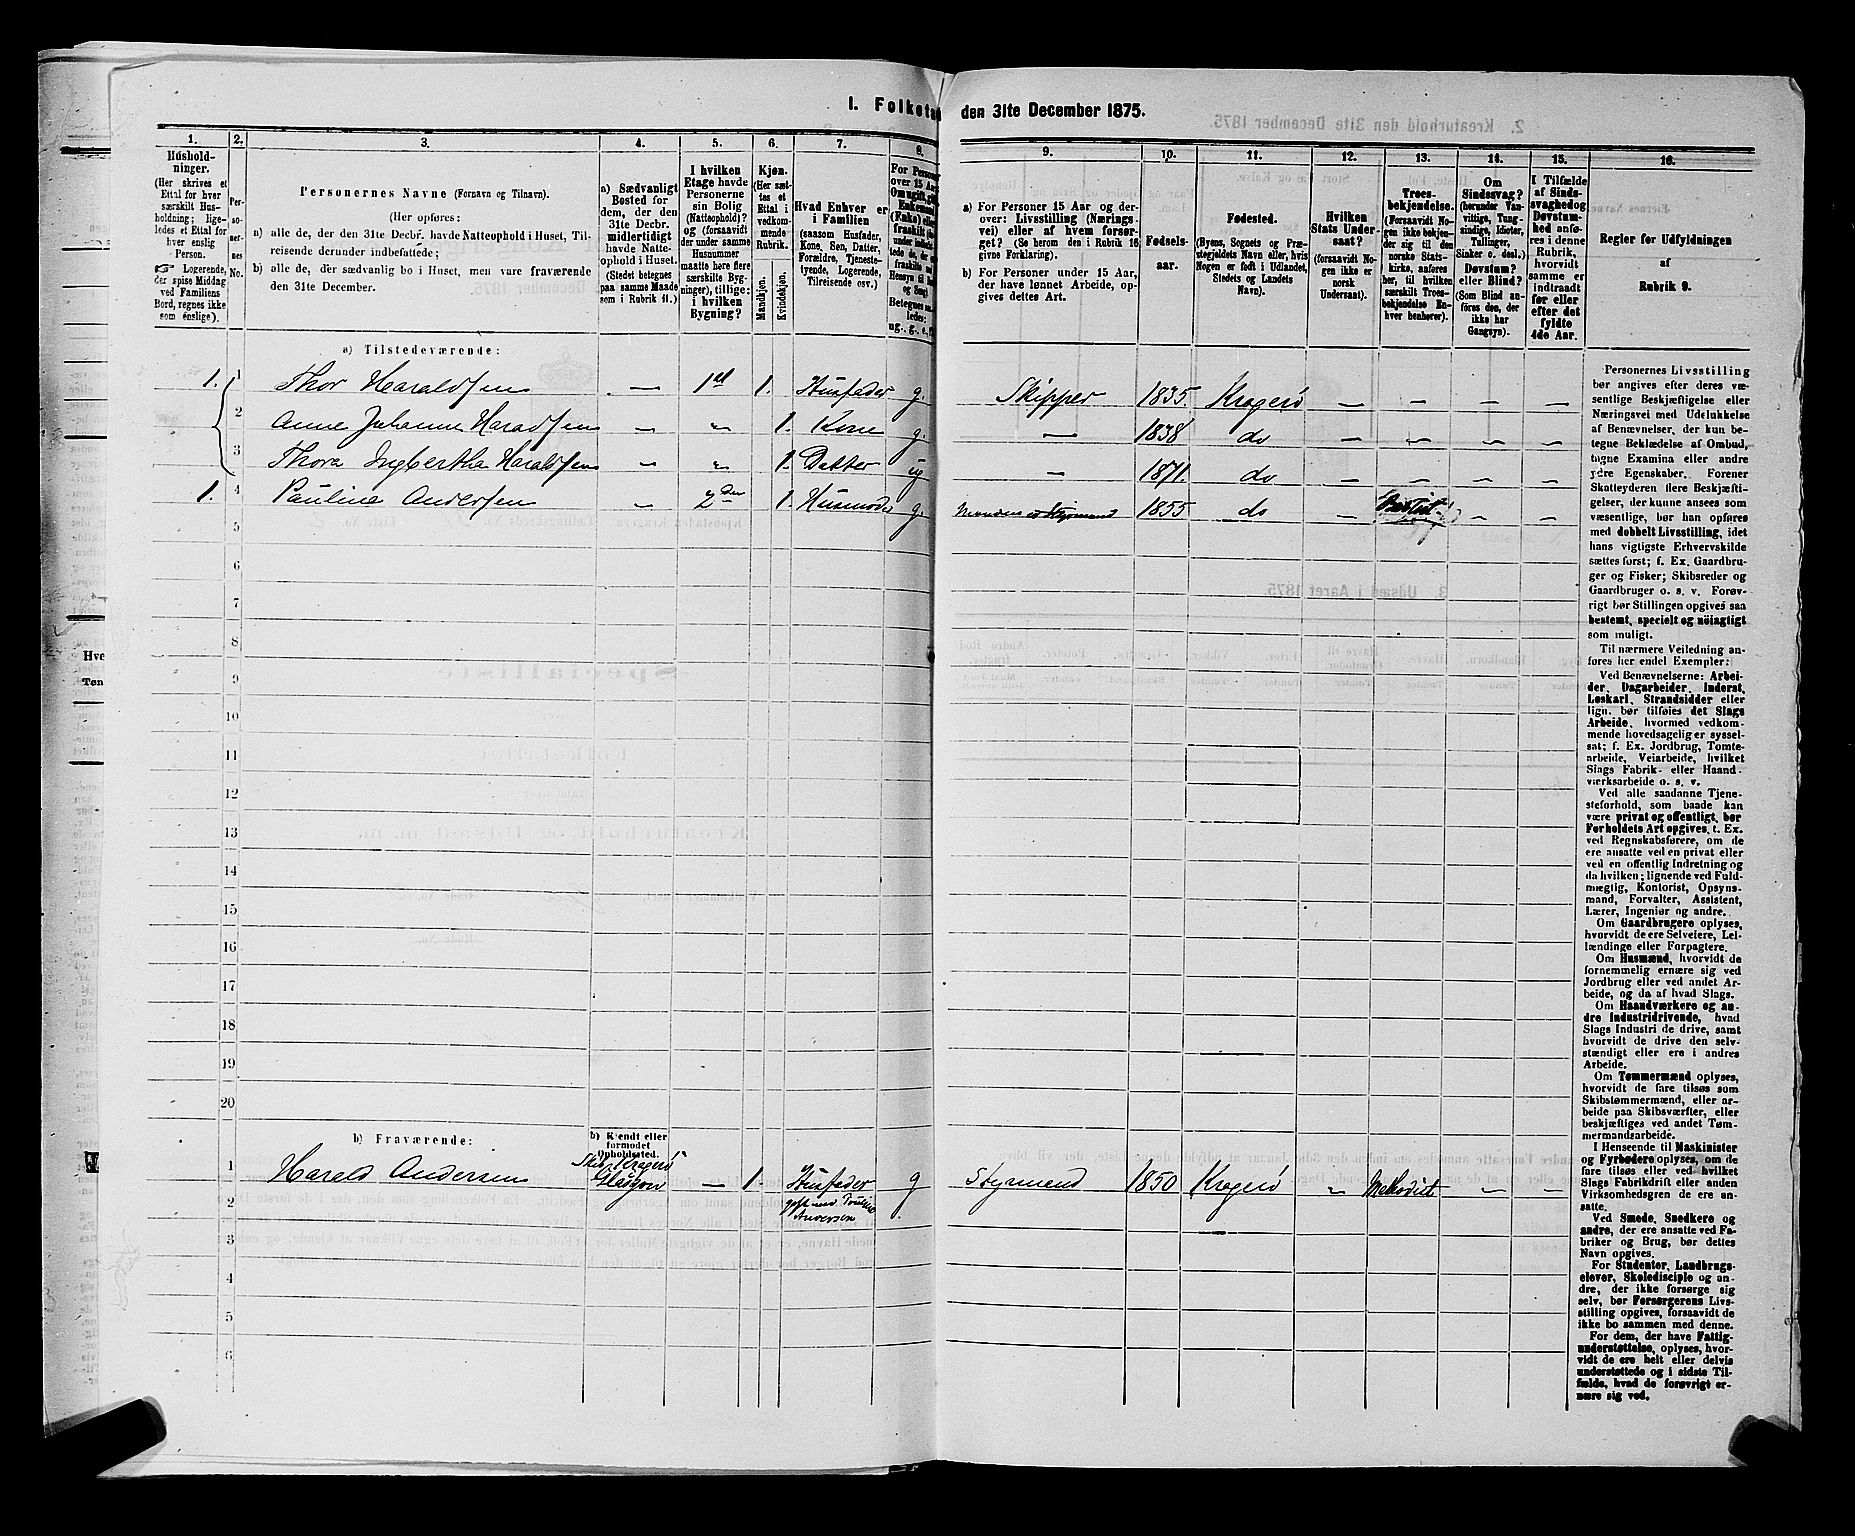 I. Folketæ den 31te December 1875.
1. 2. 3. 4. 5. 6. 7. 8. 9. 10. 11. 12. 13. 14. 15. 16.
Hushold-
ninger.
(Her skrives et
Ettal for hver
særskilt Hus-
holdning; lige-
ledes et Ettal for
hver enslig
Person.
☞ Logerende,
der spise Middag
ved Familiens
Bord, regnes ikke
som enslige).
Per-
so-
ner-
nes
No.
Personernes Navne (Fornavn og Tilnavn).
(Her opføres:
a) alle de, der den 31te Decbr. havde Natteophold i Huset, Til-
reisende derunder indbefattede;
b) alle de, der sædvanlig bo i Huset, men vare fraværende
den 31te December.
a) Sædvanligt
Bosted for
dem, der den
31te Decbr.
midlertidigt
havde Natte-
ophold i Huset.
(Stedet betegnes
paa samme Maade
som i Rubrik 11.)
I hvilken
Etage havde
Personerne
sin Bolig
(Natteophold)?
og (forsaavidt
der under samme
Husnummer
maatte høre flere
særskilte Byg-
ninger), tillige:
i hvilken
Bygning?
Kjøn.
(Her sæt-
tes et
Ettal i
vedkom-
mende
Rubrik.
Mandkjøn.
Kvindekjøn.
Hvad Enhver er
i Familien
(saasom Husfader,
Kone, Søn, Datter,
Forældre, Tjeneste-
tyende, Logerende,
Tilreisende osv.)
a) For Personer 15 Aar og der-
over: Livsstilling (Nærings-
vei) eller af hvem forsør-
get? (Se herom den i Rubrik 16
givne Forklaring).
b) For Personer under 15 Aar,
der have lønnet Arbeide, op-
gives dettes Art.
Fødsels-
aar.
Fødested.
(Byens, Sognets og Præ-
stegjeldets Navn eller, hvis
Nogen er født i Udlandet,
Stedets og Landets
Navn).
Hvilken
Stats Under-
saat?
(forsaavidt No-
gen ikke er
norsk
Undersaat).
Troes-
bekjendelse.
(Forsaavidt No-
gen ikke bekjen-
der sig til den
norske Stats-
kirke, anføres
her, til hvilken
særskilt Troes-
bekjendelse En-
hver henhører).
Om
Sindssvag?
(herunder Van-
vittige, Tung-
sindige, Idioter,
Tullinger,
Sinker o. desl.)
Døvstum?
eller Blind?
(Som Blind an-
føres den, der
ikke har
Gangsyn).
I Tilfælde
af Sinds-
svaghed og
Døvstum-
hed anfø-
res i denne
Rubrik,
hvorvidt
samme er
indtraadt
før eller
efter det
fyldte
4de Aar.
Regler for Udfyldningen
af
Rubrik 9.
a) Tilstedeværende:
1. 1 Thor Haraldsen — 1st 1. Husfader g. Skipper 1835. Kragerø — — — —
2 Anne Johanne Haraldsen — „ 1. Kone g. — 1838 do — — — —
3 Thora Ingbertha Haraldsen — „ 1. Datter ug — 1871. do — — — —
1. 4 Pauline Andersen — 2den 1. Husmoder g. Manden er Styrmand 1855 do — — —
5
6
7
8
9
10
11
12
13
14
15
16
17
18
19
20
b) Fraværende:
b) Kjendt eller
formodet
Opholdssted.
1 Harald Andersen Skib „Kragerø“ Glasgow — 1. Husfader g Styrmand 1850 Kragerø „ Methodist — —
2 gift med Pauline Andersen
3
4
5
6
Personernes Livsstilling
bør angives efter deres væ-
sentlige Beskjæftigelse eller
Næringsvei med Udelukkelse
af Benævnelser, der kun be-
tegne Beklædelse af Ombud,
tagne Examina eller andre
ydre Egenskaber. Forener
Skatteyderen flere Beskjæfti-
gelser, der kunne ansees som
væsentlige, bør han opføres
med dobbelt Livsstilling, idet
hans vigtigste Erhvervskilde
sættes først; f. Ex. Gaardbru-
ger og Fisker; Skibsreder og
Gaardbruger o. s. v. Forøv-
rigt bør Stillingen opgives saa
bestemt, specielt og nøiagtigt
som muligt.
Til nærmere Veiledning an-
føres her endel Exempler:
Ved Benævnelserne: Arbei-
der, Dagarbeider, Inderst,
Løskarl, Strandsidder eller
lign. bør tilføies det Slags
Arbeide, hvormed vedkom-
mende hovedsagelig er syssel-
sat; f. Ex. Jordbrug, Tomte-
arbeide, Veiarbeide, hvilket
Slags Fabrik- eller Haand-
værksarbeide o. s. v.
Ved alle saadanne Tjene-
steforhold, som baade kan
være privat og offentligt, bør
Forholdets Art opgives, t. Ex.
ved Regnskabsførere, om de
ere ansatte ved en privat eller
ved en offentlig Indretning og
da hvilken; lignende ved Fuld-
mægtig, Kontorist, Opsyns-
mand, Forvalter, Assistent,
Lærer, Ingeniør og andre.
Om Gaardbrugere oplyses,
hvorvidt de ere Selveiere, Lei-
lændinge eller Forpagtere.
Om Husmænd, hvorvidt de
fornemmelig ernære sig ved
Jordbrug eller ved andet Ar-
beide, og da af hvad Slags.
Om Haandværkere og an-
dre Industridrivende, hvad
Slags Industri de drive, samt
hvorvidt de drive den selv-
stændigt eller ere i andres
Arbeide.
Om Tømmermænd oplyses,
hvorvidt de fare tilsøs som
Skibstømmermænd, eller ar-
beide paa Skibsværfter, eller
beskjæftiges ved andet Tøm-
mermandsarbeide.
I Henseende til Maskinister
og Fyrbødere oplyses, om de
fare tilsøs eller ved hvilket
Slags Fabrikdrift eller anden
Virksomhedsgren de ere an-
satte.
Ved Smede, Snedkere og
andre, der ere ansatte ved Fa-
briker og Brug, bør dettes
Navn opgives.
For Studenter, Landbrugs-
elever, Skoledisciple og an-
dre, der ikke forsørge sig
selv, bør Forsørgerens Livs-
stilling opgives, forsaavidt de
ikke bo sammen med denne.
For dem, der have Fattig-
understøttelse, oplyses, hvor-
vidt de ere helt eller delvis
understøttede og i sidste Til-
fælde, hvad de forøvrigt er-
nære sig ved.